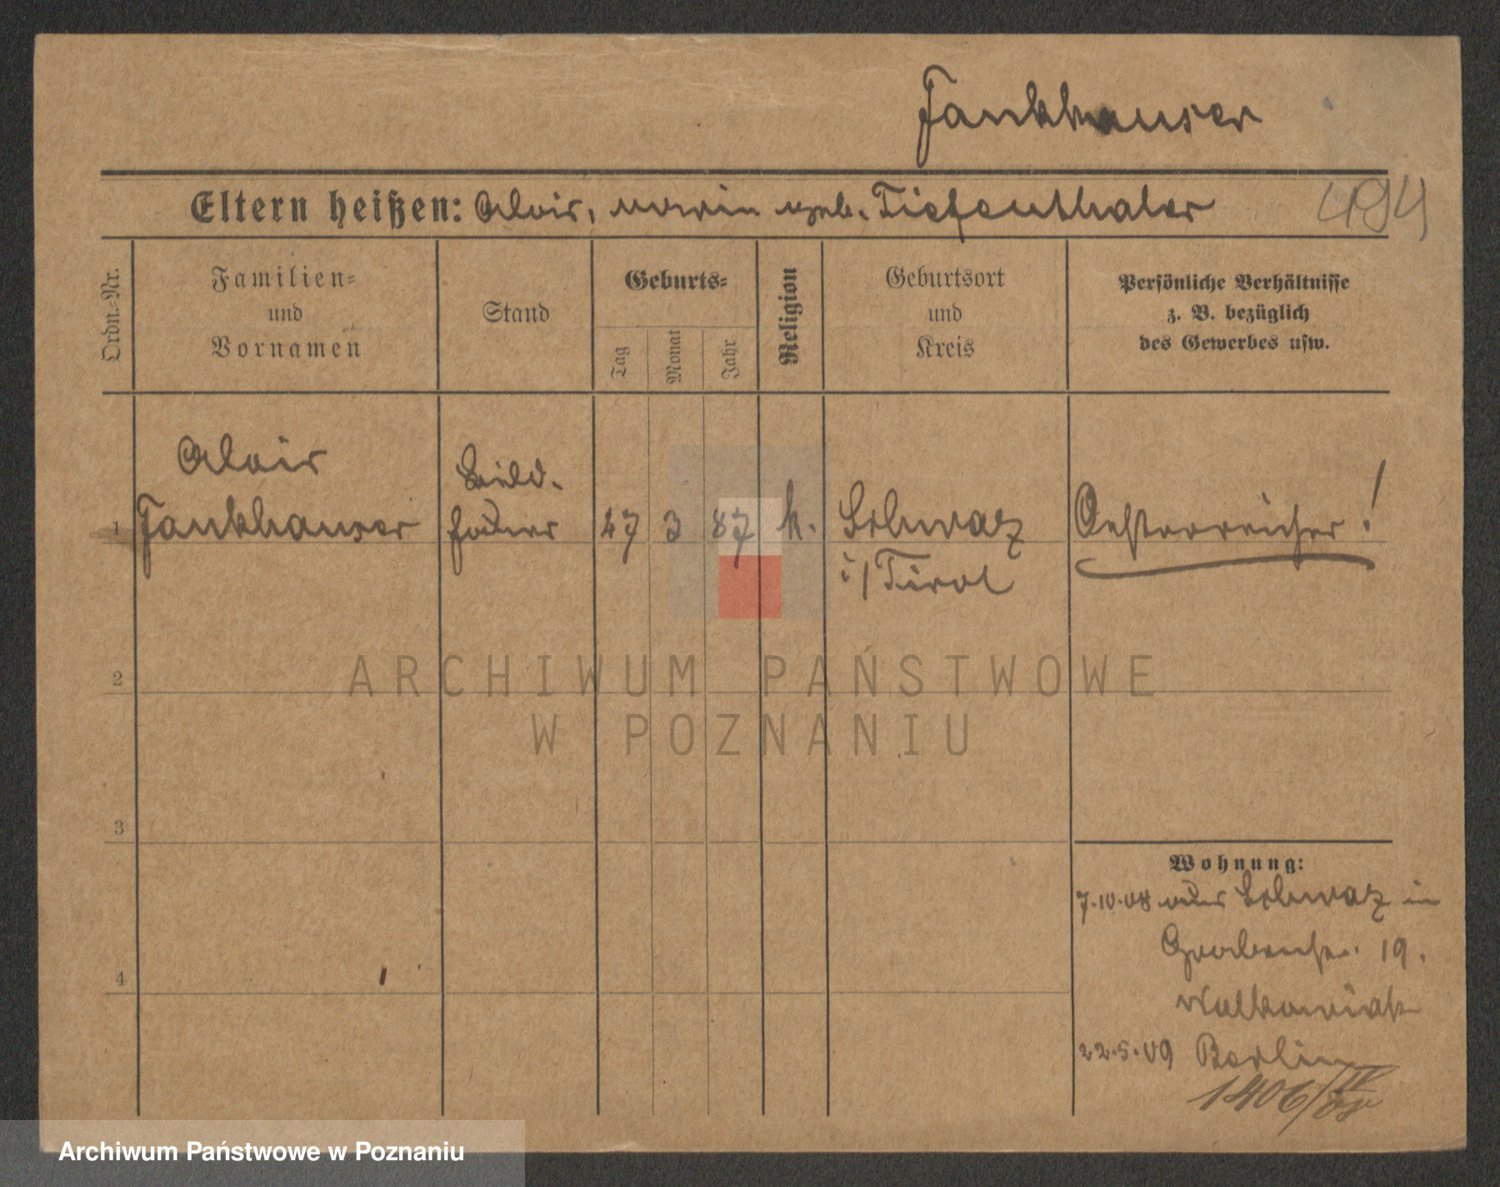 Fankhauser
Eltern heißen: Alois, Maria geb. Tiefenthaler
494
Ordn.-Nr.
Familien-
und
Vornamen
Stand
Geburts-
Tag
Monat
Jahr
Religion
Geburtsort
und
Kreis
Persönliche Verhältnisse
z. B. bezüglich
des Gewerbes usw.
Alois
Fankhauser
Bild-
hauer
1
27 3 87 k.
Schwaz
i/Tirol
Oesterreicher!
2
3
4
ARCHIWUM PAŃSTWOWE
W POZNANIU
Wohnung:
7.10.08 aus Schwaz in
Grabenstr. 19.
22.5.09 Berlin
1406/IV
Archiwum Państwowe w Poznaniu